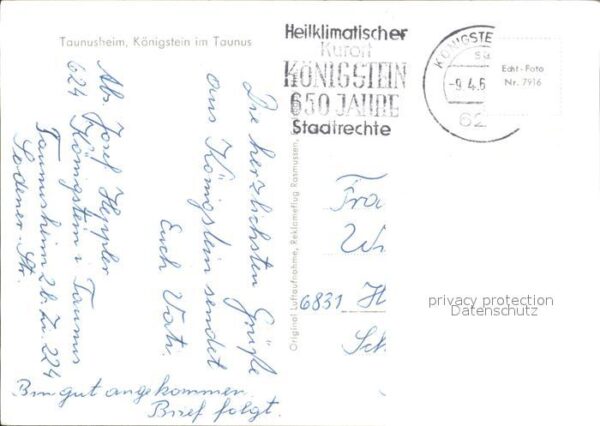 Taunusheim, Königstein im Taunus
Heilklimatischer
Kurort
KÖNIGSTEIN
650 JAHRE
Stadtrechte
KÖNIGSTE
-9.4.6
62
Echt-Foto
Nr. 7916
Ab. Josef Heppler
624 Königstein i. Taunus
Taunusheim 2b. Zi. 224
Sodener-Str.
Die herzlichsten Grüße
aus Königstein sendet
Euch Vati.
Bin gut angekommen.
Brief folgt.
Original Luftaufnahme, Reklameflug Rasmussen,
Fra
6831 H
Sch
privacy protection
Datenschutz